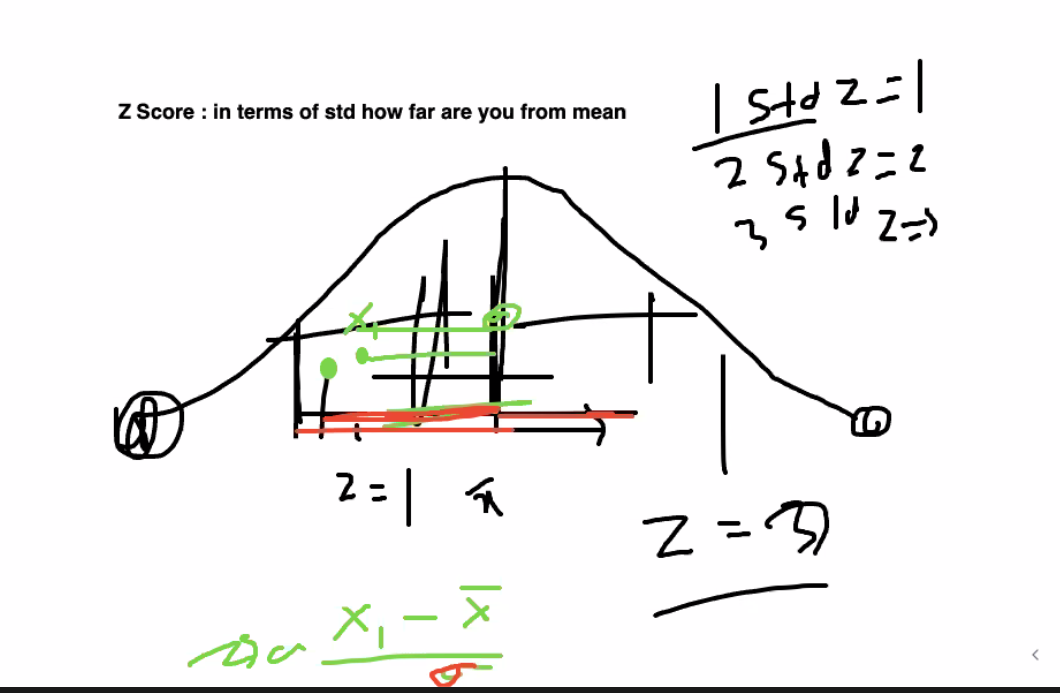 Z Score : in terms of std how far are you from mean
1 std z = 1
2 std z = 2
3 std z =
x₁
z = 1 x̄
z = 3
x₁ - x̄
σ